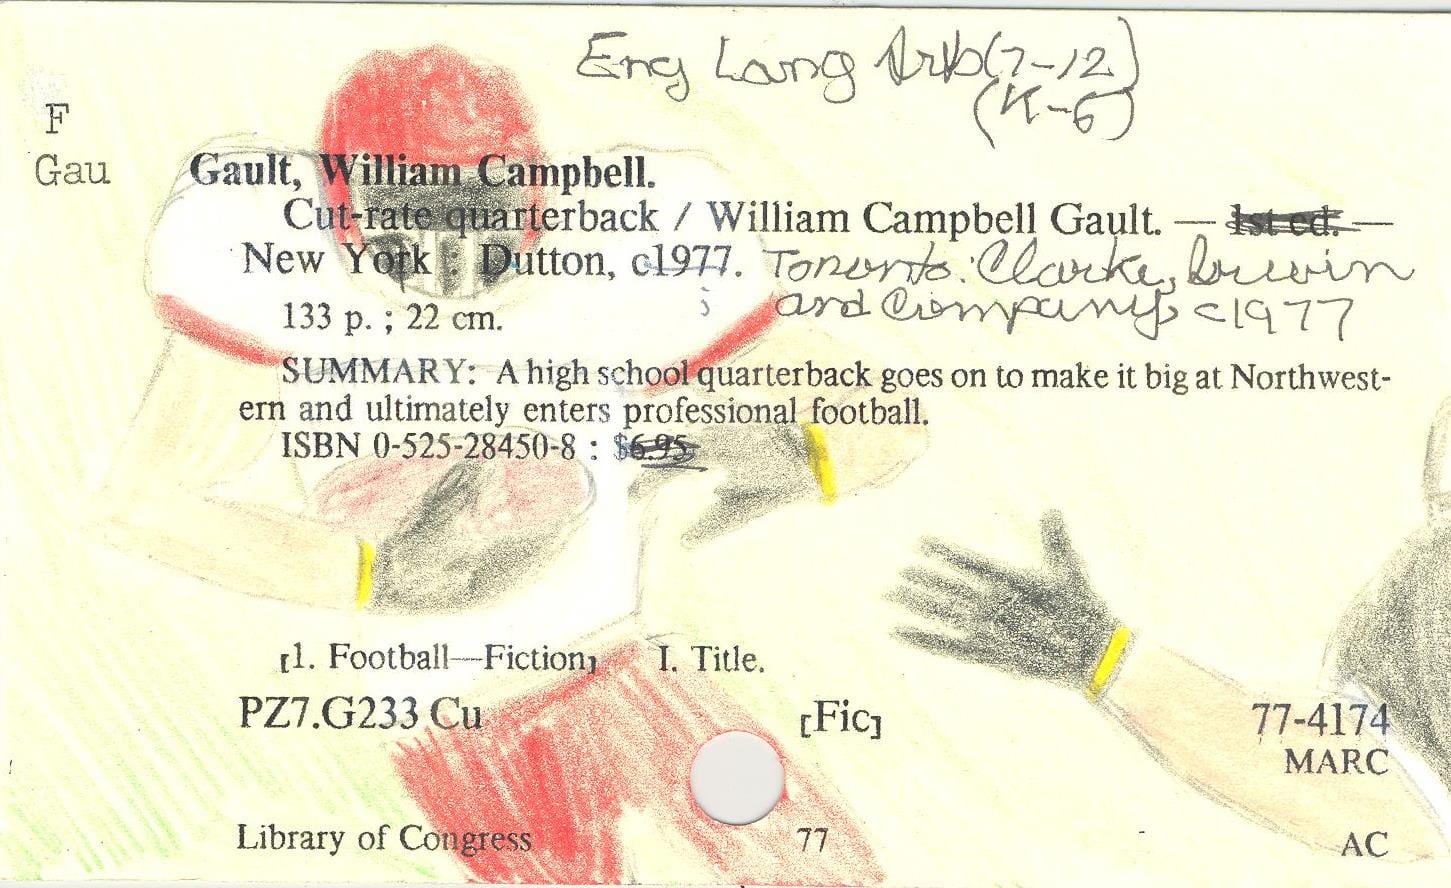 Eng Lang Arts (7-12)
(K-6)
F
Gau
Gault, William Campbell.
Cut-rate quarterback / William Campbell Gault. — 1st ed. —
New York : Dutton, c1977. Toronto: Clarke, Irwin
and Company, c1977
133 p. ; 22 cm.
SUMMARY: A high school quarterback goes on to make it big at Northwest-
ern and ultimately enters professional football.
ISBN 0-525-28450-8 : $6.95
[1. Football—Fiction] I. Title.
PZ7.G233 Cu [Fic] 77-4174
MARC
Library of Congress 77 AC